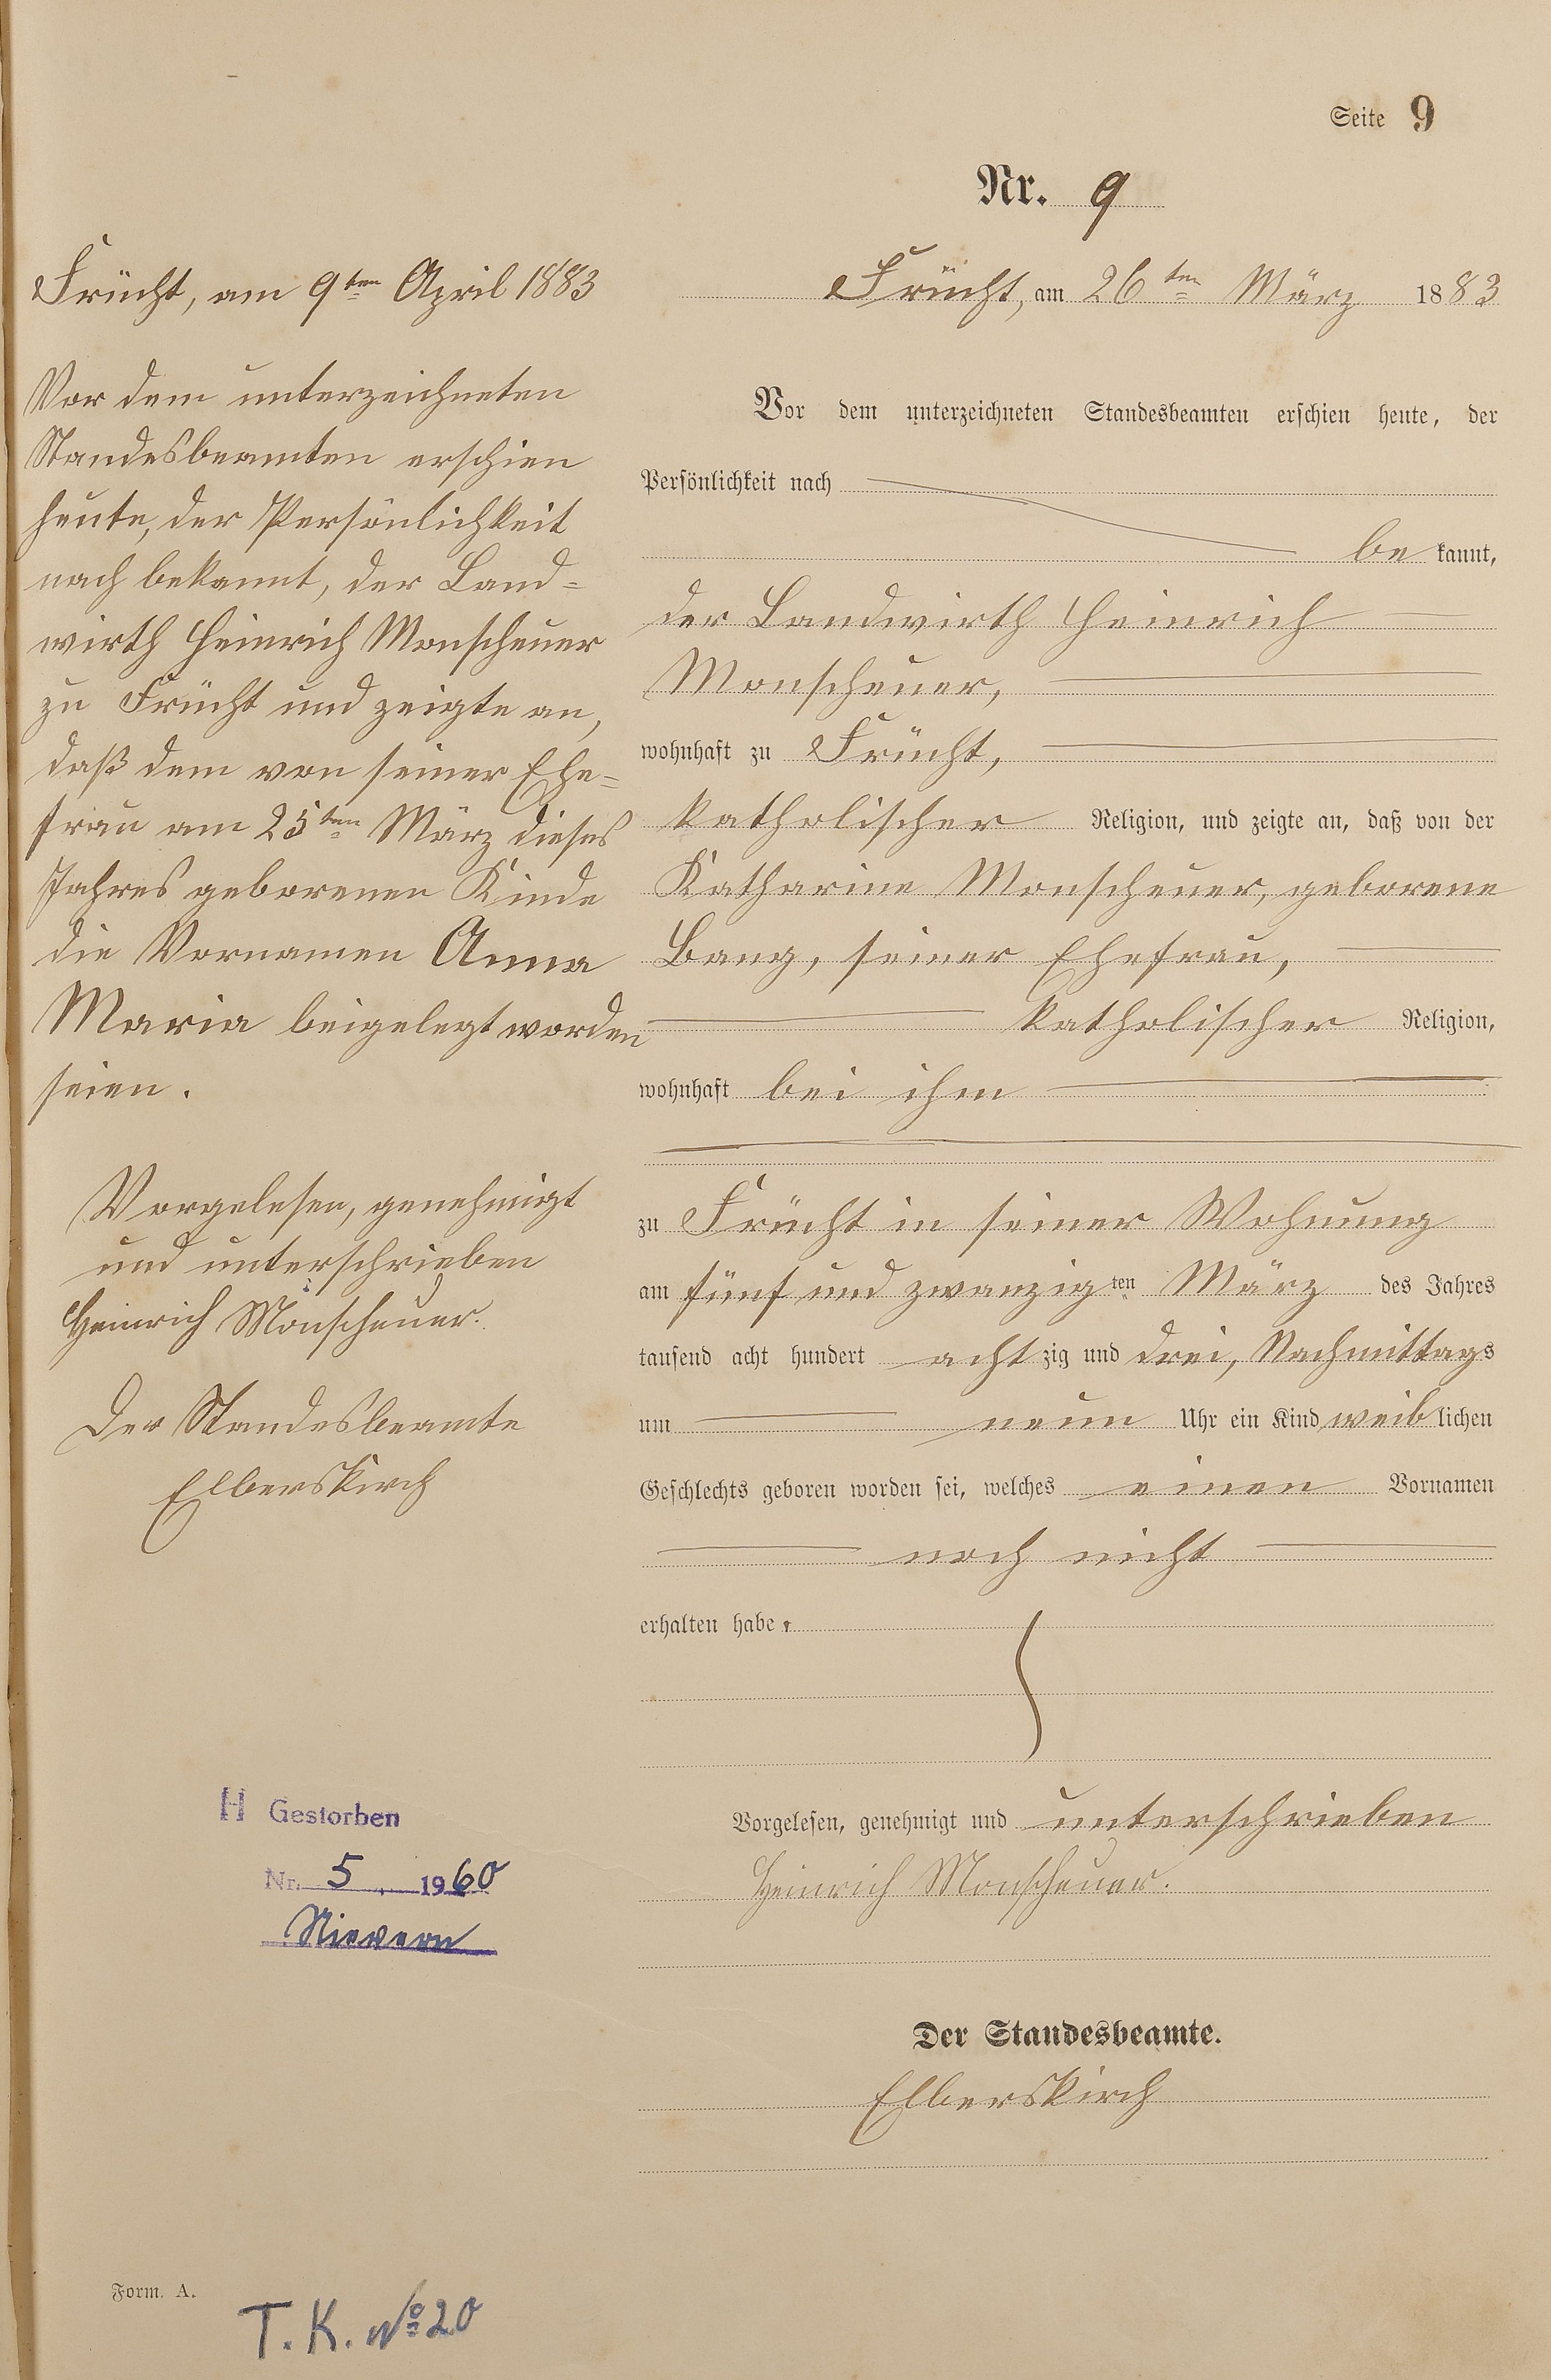 Seite 9
Nr. 9
Frücht, am 9ten April 1883
Vor dem unterzeichneten
Standesbeamten erschien
heute, der Persönlichkeit
nach bekannt, der Land-
wirth Heinrich Monscheuer
zu Frücht und zeigte an,
daß dem von seiner Ehe-
frau am 25ten März dieses
Jahres geborenen Kinde
die Vornamen Anna
Maria beigelegt worden
seien.
Vorgelesen, genehmigt
und unterschrieben
Heinrich Monscheuer.
Der Standesbeamte
Elberskirch
H Gestorben
Nr. 5 1960
Nievern
Frücht, am 26ten März 1883
Vor dem unterzeichneten Standesbeamten erschien heute, der
Persönlichkeit nach
be kannt,
der Landwirth Heinrich
Monscheuer,
wohnhaft zu Frücht,
katholischer Religion, und zeigte an, daß von der
Katharine Monscheuer, geborene
Bang, seiner Ehefrau,
katholischer Religion,
wohnhaft bei ihm
zu Frücht in seiner Wohnung
am fünf und zwanzigten März des Jahres
tausend acht hundert achtzig und drei, Nachmittags
um neun Uhr ein Kind weiblichen
Geschlechts geboren worden sei, welches einen Vornamen
noch nicht
erhalten habe.
Vorgelesen, genehmigt und unterschrieben
Heinrich Monscheuer.
Der Standesbeamte.
Elberskirch
Form. A.
T. K. № 20